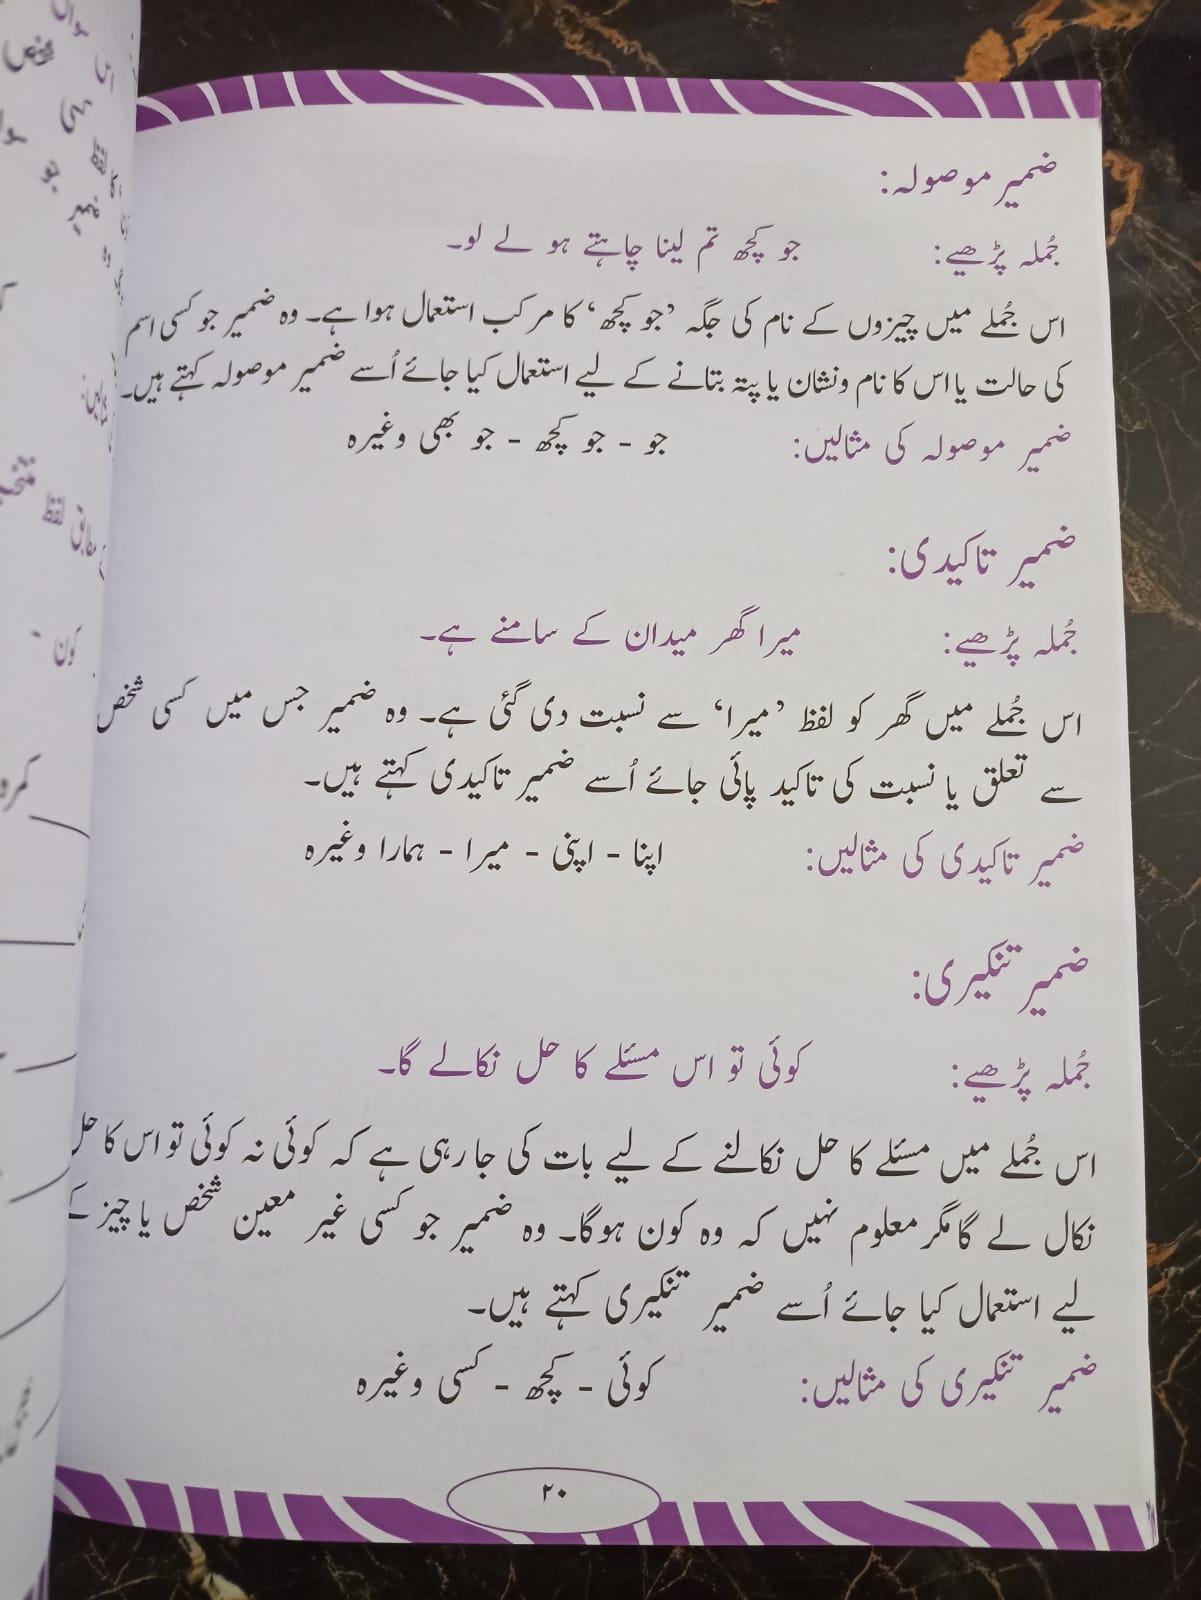 ضمیر موصولہ:
جُملہ پڑھیے: جو کچھ تم لینا چاہتے ہو لے لو۔
اس جُملے میں چیزوں کے نام کی جگہ ’جو کچھ‘ کا مرکب استعمال ہوا ہے۔ وہ ضمیر جو کسی اسم
کی حالت یا اس کا نام ونشان یا پتہ بتانے کے لیے استعمال کیا جائے اُسے ضمیر موصولہ کہتے ہیں۔
ضمیر موصولہ کی مثالیں: جو - جو کچھ - جو بھی وغیرہ
ضمیر تاکیدی:
جُملہ پڑھیے: میرا گھر میدان کے سامنے ہے۔
اس جُملے میں گھر کو لفظ ’میرا‘ سے نسبت دی گئی ہے۔ وہ ضمیر جس میں کسی شخص
سے تعلق یا نسبت کی تاکید پائی جائے اُسے ضمیر تاکیدی کہتے ہیں۔
ضمیر تاکیدی کی مثالیں: اپنا - اپنی - میرا - ہمارا وغیرہ
ضمیر تنکیری:
جُملہ پڑھیے: کوئی تو اس مسئلے کا حل نکالے گا۔
اس جُملے میں مسئلے کا حل نکالنے کے لیے بات کی جا رہی ہے کہ کوئی نہ کوئی تو اس کا حل
نکال لے گا مگر معلوم نہیں کہ وہ کون ہوگا۔ وہ ضمیر جو کسی غیر معین شخص یا چیز کے
لیے استعمال کیا جائے اُسے ضمیر تنکیری کہتے ہیں۔
ضمیر تنکیری کی مثالیں: کوئی - کچھ - کسی وغیرہ
۲۰